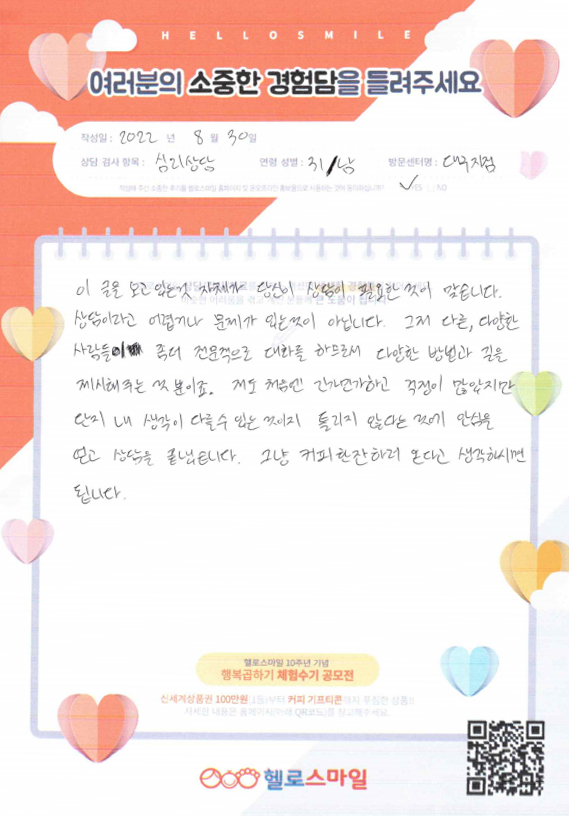 HELLOSMILE
여러분의 소중한 경험담을 들려주세요
작성일 : 2022 년 8 월 30일
상담·검사 항목 : 심리상담 연령·성별 : 31/남 방문센터명 : 대구지점
작성해 주신 소중한 후기를 헬로스마일 홈페이지 및 온오프라인 홍보물으로 사용하는 것에 동의하십니까? YES NO
이 글을 보고 있는 것 자체가 당신이 상담이 필요한 것이 맞습니다.
상담이라고 어렵거나 문제가 있는것이 아닙니다. 그저 다른, 다양한
사람들이 좀더 전문적으로 대화를 하므로써 다양한 방법과 길을
제시해주는 것 뿐이죠. 저도 처음엔 긴가민가하고 걱정이 많았지만
단지 내 생각이 다를수 있는 것이지 틀리지 않다는 것에 안심을
얻고 상담을 끝냈습니다. 그냥 커피한잔하러 온다고 생각하시면
됩니다.
헬로스마일 10주년 기념
행복곱하기 체험수기 공모전
신세계상품권 100만원(1등)부터 커피 기프티콘까지 푸짐한 상품!!
자세한 내용은 홈페이지(아래 QR코드)를 참고해주세요.
헬로스마일